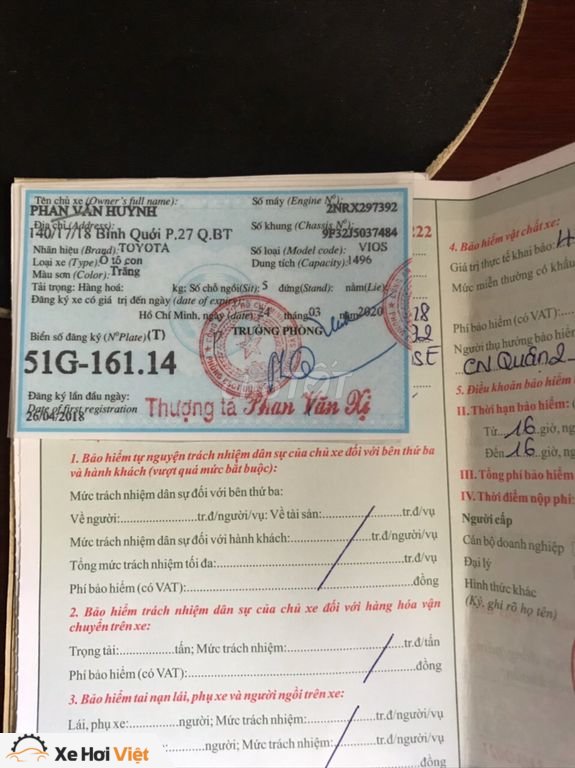 Tên chủ xe (Owner's full name):
PHAN VĂN HUỲNH
Địa chỉ (Address):
140/17/18 Bình Quới P.27 Q.BT
Nhãn hiệu (Brand): TOYOTA
Loại xe (Type): Ô tô con
Màu sơn (Color): Trắng
Tải trọng: Hàng hoá: kg; Số chỗ ngồi (Sit): 5 đứng (Stand): nằm (Lie):
Đăng ký xe có giá trị đến ngày (date of expiry):
Số máy (Engine Nº):
2NRX297392
Số khung (Chassis Nº):
9P32J5037484
Số loại (Model code): VIOS
Dung tích (Capacity): 1496
Hồ Chí Minh, ngày (date) 24 tháng 03 năm 2020
Biển số đăng ký (Nº Plate) (T)
TRƯỞNG PHÒNG
51G-161.14
Đăng ký lần đầu ngày:
Date of first registration
26/04/2018
Thượng tá Phan Văn Xị
222
18
SE
1. Bảo hiểm tự nguyện trách nhiệm dân sự của chủ xe đối với bên thứ ba
và hành khách (vượt quá mức bắt buộc):
Mức trách nhiệm dân sự đối với bên thứ ba:
Về người:............tr.đ/người/vụ; Về tài sản:............tr.đ/vụ
Mức trách nhiệm dân sự đối với hành khách:............tr.đ/người/vụ
Tổng mức trách nhiệm tối đa:............tr.đ/vụ
Phí bảo hiểm (có VAT):............đồng
2. Bảo hiểm trách nhiệm dân sự của chủ xe đối với hàng hóa vận
chuyển trên xe:
Trọng tải:............tấn; Mức trách nhiệm:............tr.đ/tấn
Phí bảo hiểm (có VAT):............đồng
3. Bảo hiểm tai nạn lái, phụ xe và người ngồi trên xe:
Lái, phụ xe:............người; Mức trách nhiệm:............tr.đ/người/vụ
............người; Mức trách nhiệm:............tr.đ/người/vụ
đồng
4. Bảo hiểm vật chất xe:
Giá trị thực tế khai báo:
Mức miễn thường có khấu
Phí bảo hiểm (có VAT):
Người thụ hưởng bảo hiểm
CN Quận 2
5. Điều khoản bảo hiểm
II. Thời hạn bảo hiểm:
Từ 16 giờ, ng
Đến 16 giờ, ng
III. Tổng phí bảo hiểm
IV. Thời điểm nộp phí:
Người cấp
Cán bộ doanh nghiệp
Đại lý
Hình thức khác
(Ký, ghi rõ họ tên)
Xe Hơi Việt